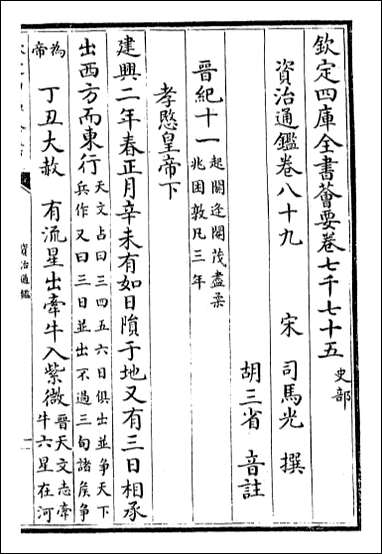 欽定四庫全書薈要卷七千七十五 史部
資治通鑑卷八十九
宋 司馬光 撰
胡三省 音註
晉紀十一 起閼逢閹茂盡柔
兆困敦凡三年
孝愍皇帝下
建興二年春正月辛未有如日隕于地又有三日相承
出西方而東行 天文占曰三四五六日俱出並爭天下
兵作又曰三日並出不過三旬諸侯爭
為
帝 丁丑大赦 有流星出牽牛入紫微 晉天文志牽
牛六星在河
資治通鑑